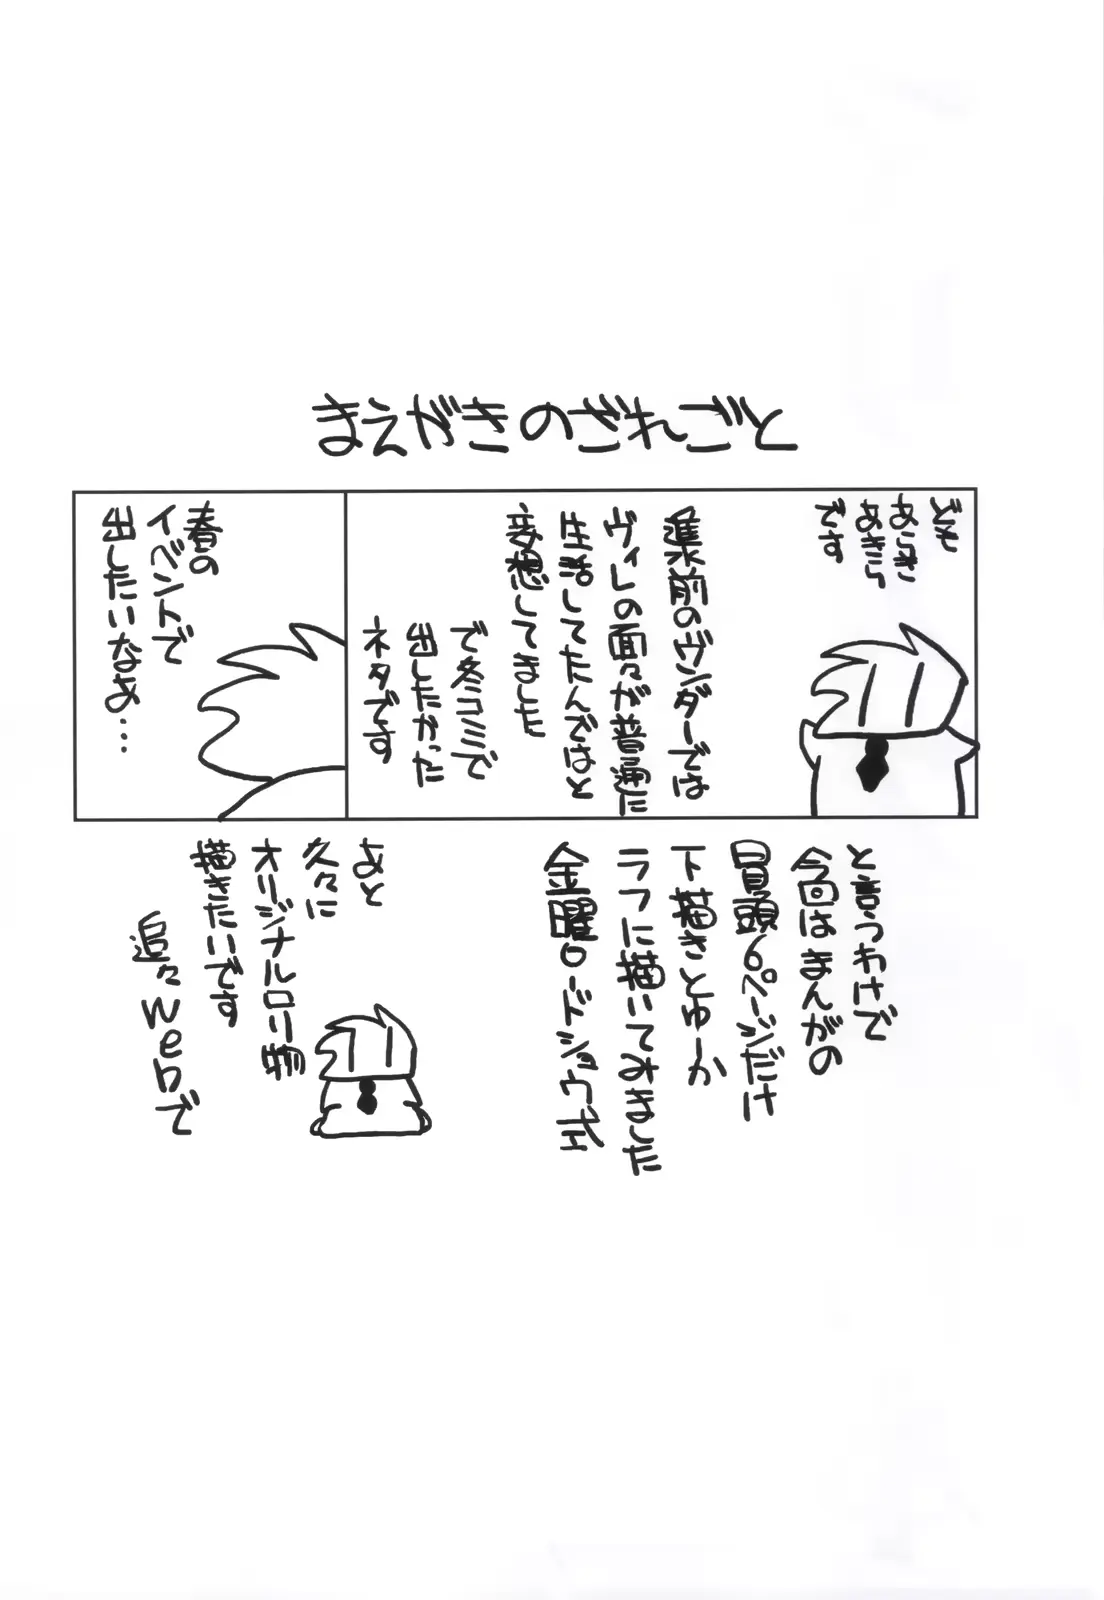 まえがきのざれごと
ども
あらき
あきら
です
進水前のヴンダーでは
ヴィレの面々が普通に
生活してたんではと
妄想してました
で冬コミで
出したかった
ネタです
春の
イベントで
出したいなあ…
と言うわけで
今回はまんがの
冒頭6ページだけ
下描きとゆーか
ラフに描いてみました
金曜ロードショウ式
あと
久々に
オリジナルロリ物
描きたいです
追々Webで